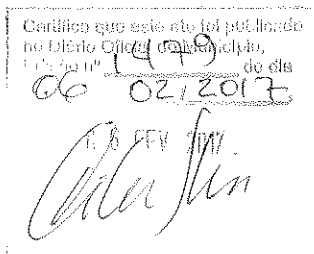 Certifico que este ato foi publicado
no Diário Oficial do Município,
nº 1479 do dia
06 02/2017
FEV 2017